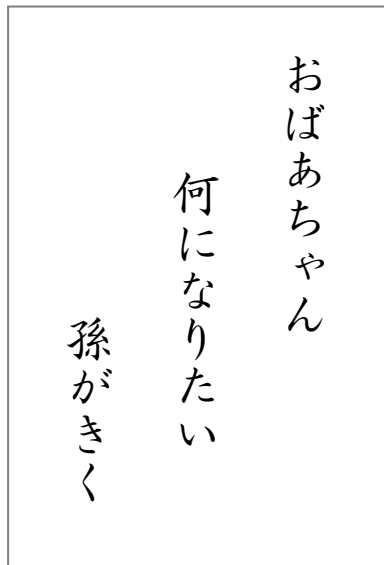 おばあちゃん
何になりたい
孫がきく